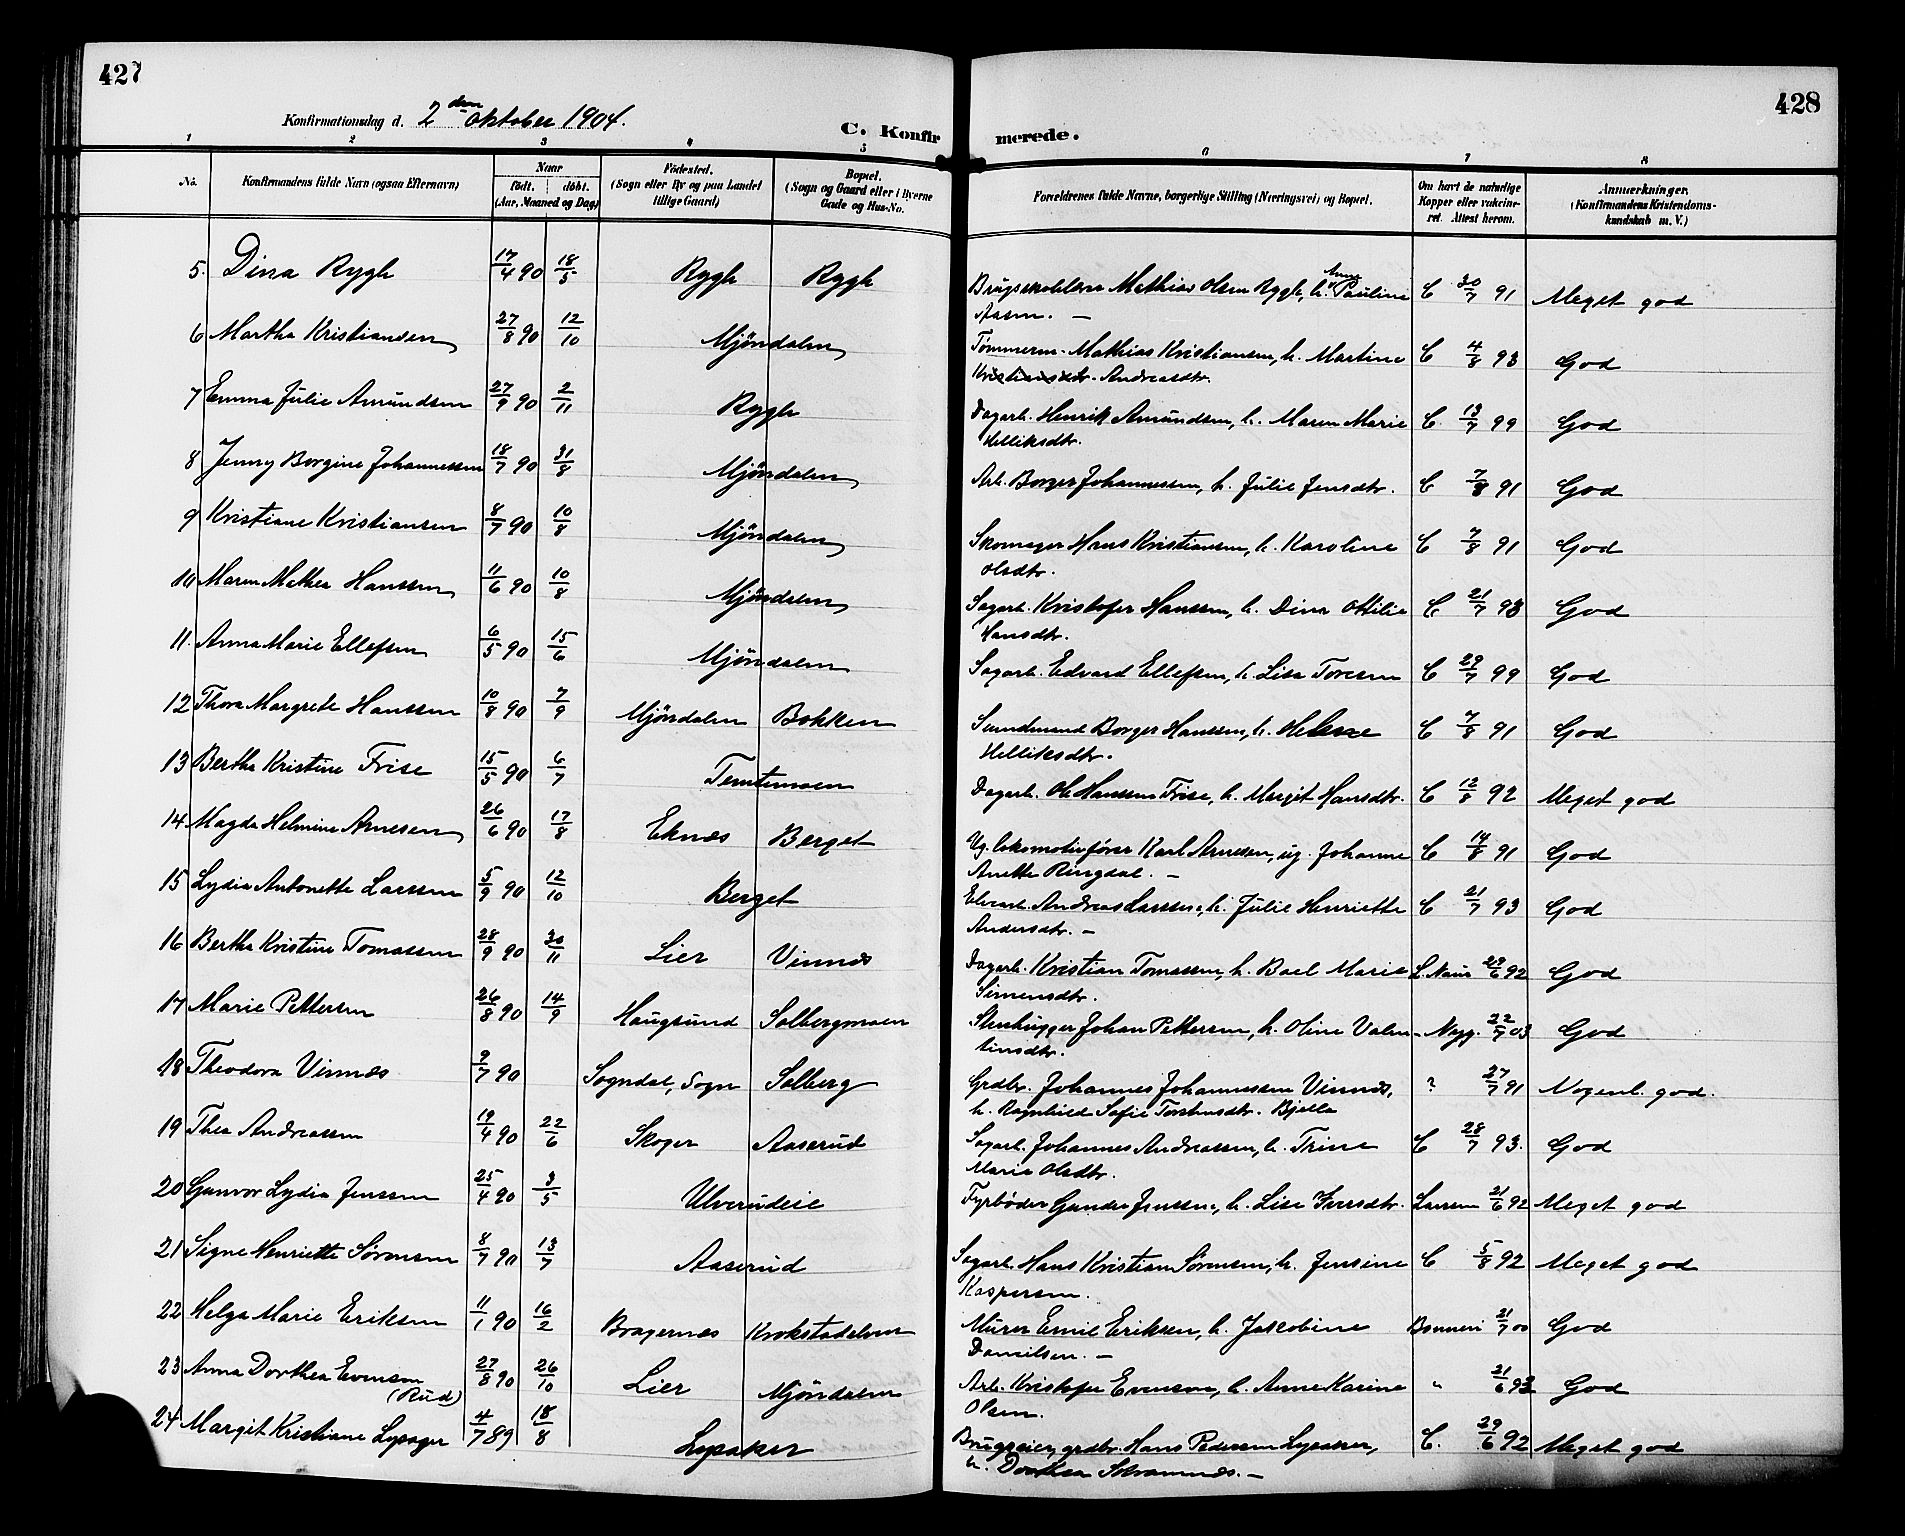 427
428
Konfirmationsdag d. 2den Oktober 1904.
C. Konfirmerede.
1 2 3 4 5 6 7 8
No.
Konfirmandens fulde Navn (ogsaa Efternavn)
Naar
födt. döbt.
(Aar, Maaned og Dag)
Födested.
(Sogn eller By og paa Landet
tillige Gaard)
Bopæl.
(Sogn og Gaard eller i Byerne
Gade og Hus-No.
Forældrenes fulde Navne, borgerlige Stilling (Næringsvei) og Bopæl.
Om havt de naturlige
Kopper eller vakcine-
ret. Attest herom.
Anmærkninger.
(Konfirmandens Kristendoms-
kundskab m. V.)
5. Dina Rygh 17/4 90 18/5 Rygh Rygh Mathias Olsen Rygh, h. Anne Pauline C 30/7 91 Meget god
Aasen. —
6 Martha Kristiansen 27/8 90 12/10 Mjöndalen Tømmerm. Mathias Kristiansen, h. Martine C 4/8 93 God
Kristiansdtr. Andreasdtr.
7 Emma Julie Amundsen 27/9 90 2/11 Rygh Dagarb. Henrik Amundsen, h. Maren Marie C. 13/7 99 God
Helliksdtr.
8 Jenny Borgine Johannessen 18/7 90 31/8 Mjöndalen Arb. Borger Johannessen, h. Julie Jensdtr. C 7/8 91 God
9 Kristiane Kristiansen 8/7 90 10/8 Mjöndalen Skomager Hans Kristiansen, h. Karoline C 7/8 91 God
Olsdtr.
10 Maren Mathea Hanssen 11/6 90 10/8 Mjöndalen Sagarb. Kristofer Hanssen, h. Dina Ottilie C. 21/7 93 God
Hansdtr.
11. Anna Marie Ellefsen 6/5 90 15/6 Mjöndalen Sagarb. Edvard Ellefsen, h. Lisa Toresen C 29/7 99 God
12 Thora Margrete Hanssen 10/8 90 7/9 Mjöndalen Bakken Sundmand Borger Hanssen, h. Helene C 7/8 91 God
Helliksdtr.
13 Bertha Kristine Frise 15/5 90 6/7 Temtemoen Dagarb. Ole Hanssen Frise, h. Margit Hansdtr. C 12/8 92 Meget god
14 Magda Helmine Arnesen 26/6 90 17/8 Eknæs Berget Ug. lokomotivfører Karl Arnesen, ug. Johanne C 14/8 91 God
Anette Ringdal. —
15 Lydia Antonette Larssen 5/9 90 12/10 Berget Elvearb. Andreas Larssen, h. Julie Henriette C 21/7 93 God
Andersdtr. —
16 Bertha Kristine Tomassen 28/9 90 30/11 Lier Vinnes Dagarb. Kristian Tomassen, h. Boel Marie 29/6 92 God
Simensdtr.
17 Marie Pettersen 26/8 90 14/9 Haugsund Solbergmoen Stenhugger Johan Pettersen, h. Oline Valen- Nygg. 22/7 03 God
tinsdtr.
18 Theodora Vinnæs 9/7 90 Sogndal, Sogn Solberg Grdbr. Johannes Johannessen Vinnæs, ? 27/7 91 Nogenl. god.
h. Ragnhild Sofie Torstensdtr. Bjella
19 Thea Andreassen 19/4 90 22/6 Skoger Aaserud Sagarb. Johannes Andreassen, h. Trine C 28/7 93. God
Maria Olsdtr.
20 Gunvor Lydia Jenssen 25/4 90 3/5 Ulverudeie Fyrbøder Gunder Jenssen, h. Lise Iversdtr. Larsen 21/6 92 Meget god
21 Signe Henriette Sørensen 8/7 90 13/7 Aaserud Sagarb. Hans Kristian Sørensen, h. Jensine C 5/8 92 Meget god
Kaspersen.
22 Helga Marie Eriksen 11/1 90 16/2 Bragernæs Krokstadelven Murer Emil Eriksen, h. Jakobine 21/7 00 God
Danielsen. —
23 Anna Dorthea Evensen 27/8 90 26/10 Lier Mjöndalen Arb. Kristofer Evensen, h. Anne Karine " 21/6 93 God
(Rud) Olsen.
24 Margit Kristiane Lysager 4/7 89 18/8 Lysaker Brugseier, grdbr. Hans Pedersen Lysaker, C. 29/6 92 Meget god
h. Dorthea Schramnæs. —